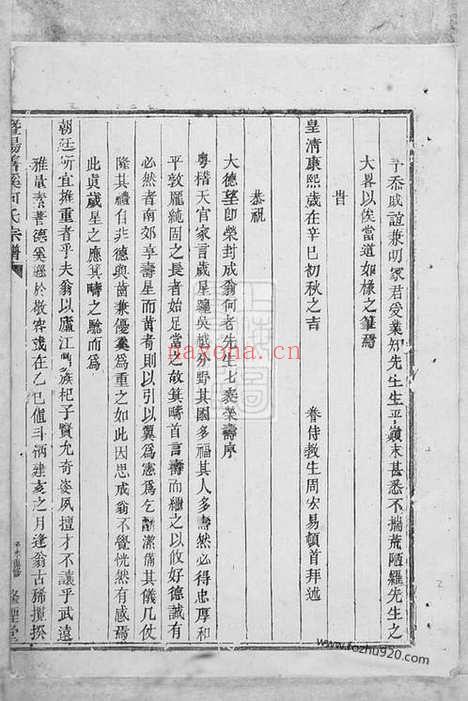 予忝戚誼兼明冢君受業知先生生平顛末甚悉不揣荒陋羅先生之
大畧以俟當道如椽之筆焉
旹
皇清康熙歲在辛巳初秋之吉
眷侍教生周宏易頓首拜述
恭祝
大德望卽榮封成翁何老先生七袠榮壽序
粵稽天官家言歲星躔吳越分野其國多福其人多壽然必得忠厚和
平敦龐純固之長者始足當之故箕疇首言壽而繼之以攸好德誠有
必然者南郊享壽星而耇者則以引以翼爲憲爲乞酳潔僃其几仗
隆其禮自非德與齒兼優奚爲重之如此因思成翁不覺恍然有感焉
此眞歲星之應箕疇之驗而爲
朝廷所宜擁重者乎夫翁以廬江
族杞子賢允奇姿夙擅才不讓乎武遠
雅量
著德奚遜於
歲在乙巳值斗柄建亥之月逢翁古稀攬揆
暨陽
溪何氏宗譜
naxona.cn
www.fozhu920.com